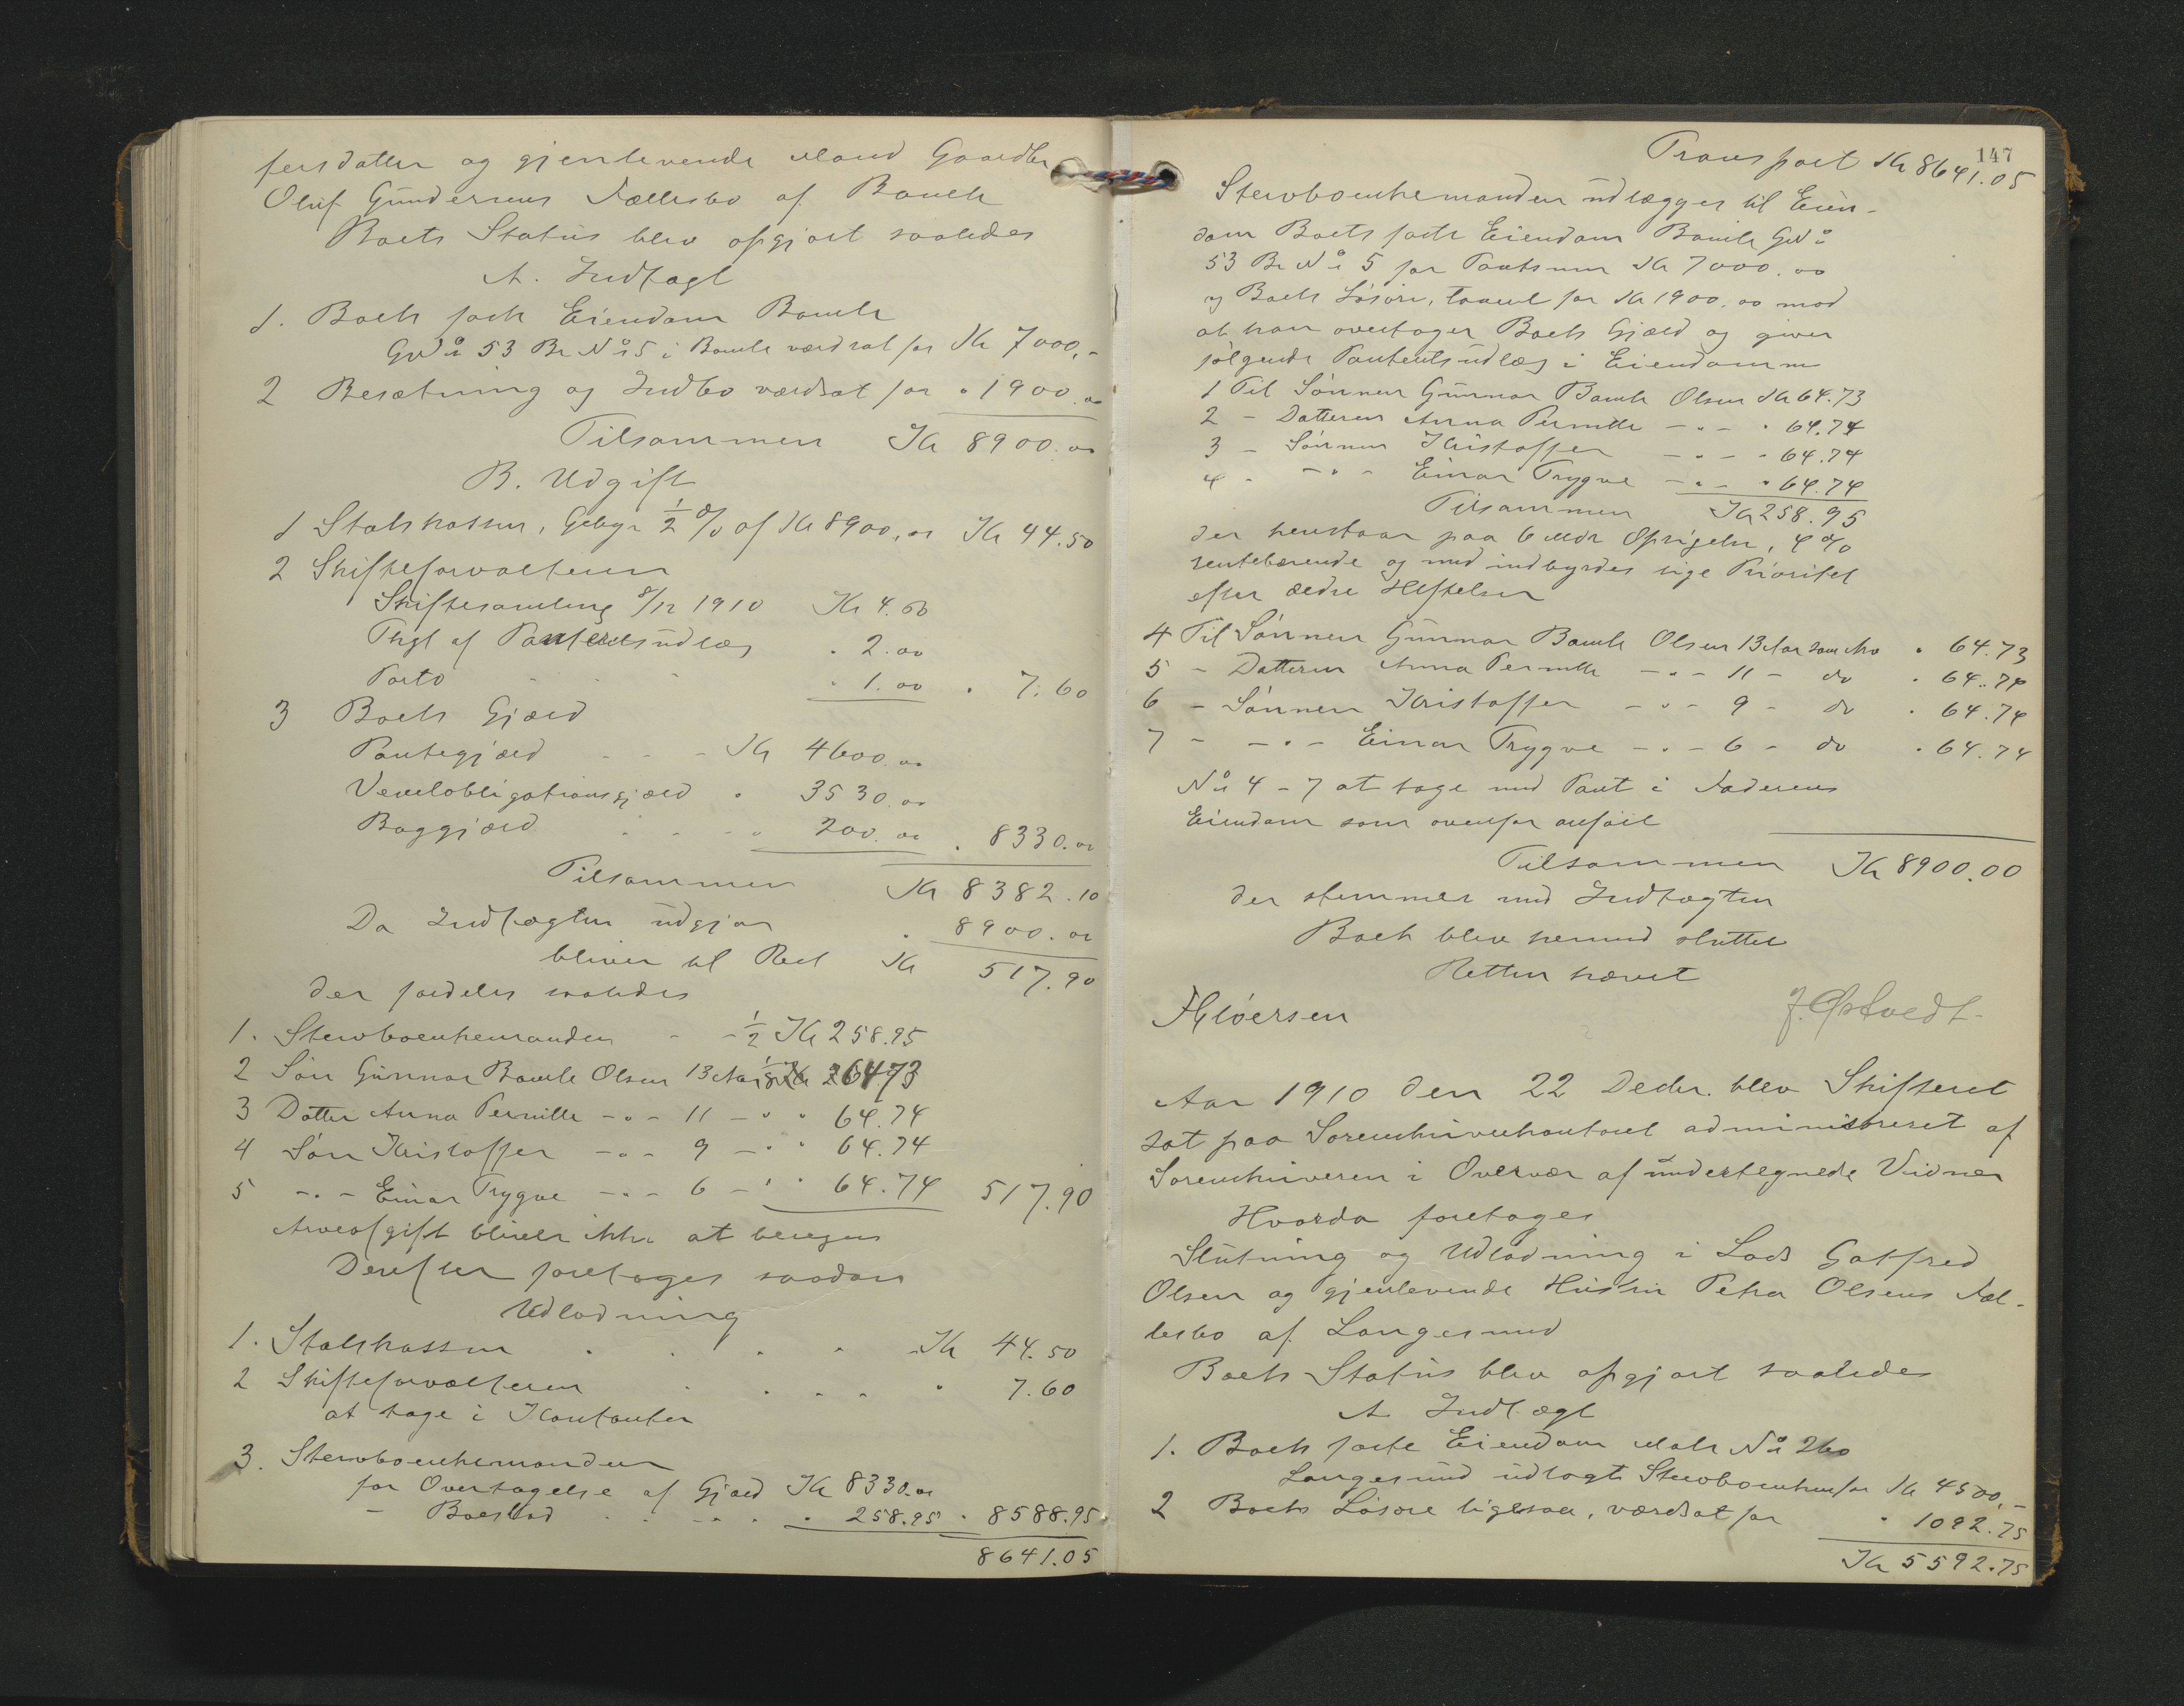 fersdatter og gjenlevende Mand Gaardbr
Oluf Gundersens Fællesbo af Bamle
Boets Status blev opgjort saaledes
A. Indtægt
1. Boets faste Eiendom Bamle
GNo 53 Br No 5 i Bamle værdsat for Kr 7000,-
2 Besætning og Indbo værdsat for " 1900.00
Tilsammen Kr 8900.00
B. Udgift
1 Statskassen, Gebyr 1/2 % af Kr 8900,00 Kr 44.50
2 Skifteforvalteren
Skiftesamling 8/12 1910 Kr 4.60
Thgl af Panteudlæg " 2.00
Porto " 1.00 " 7.60
3 Boets Gjæld
Pantegjæld - - - Kr 4600.00
Vexelobligationsgjæld " 3530.00
Boggjæld - - - " 200.00 " 8330.00
Tilsammen Kr 8382.10
Da Indtægten udgjør " 8900.00
bliver til Rest Kr 517.90
der fordeles saaledes
1. Stervboenkemanden - - 1/2 Kr 258.95
2 Søn Gunnar Bamle Olsen 13 Aar 1/8 Kr 64.73
3 Datter Anna Pernille -"- 11 -" " 64.74
4 Søn Kristoffer -"- 9 -" " 64.74
5 -"- Einar Trygve -"- 6 -" " 64.74 517.90
Arveafgift bliver ikke at beregne
Derefter foretoges saadan
Udlodning
1. Statskassen . . . . Kr 44.50
2 Skifteforvalteren . . . . " 7.60
at tage i Kontanter
3. Stervboenkemanden
for Overtagelse af Gjæld Kr 8330.00
- Boeslod . . . . " 258.95 " 8588.95
8641.05
147
Transport Kr 8641.05
Stervboenkemanden udlægges til Eien-
dom Boets faste Eiendom Bamle GNo
53 Br No 5 for Pantsum Kr 7000.00
og Boets Løsøre, taxert for Kr 1900.00 mod
at han overtager Boets Gjæld og giver
følgende Panteudlæg i Eiendommen
1 Til Sønnen Gunnar Bamle Olsen Kr 64.73
2 - Datteren Anna Pernille -"- " 64.74
3 - Sønnen Kristoffer -"- " 64.74
4 - -"- Einar Trygve -"- " 64.74
Tilsammen Kr 258.95
der henstaar paa 6 Mdr Opsigelse, 4 %
rentebærende og med indbyrdes lige Prioritet
efter ældre Heftelser
4 Til Sønnen Gunnar Bamle Olsen 13 Aar " 64.73
5 - Datteren Anna Pernille -"- 11 - do " 64.74
6 - Sønnen Kristoffer -"- 9 - do " 64.74
7 - -"- Einar Trygve -"- 6 - do " 64.74
No 4 - 7 at tage med Pant i Faderens
Eiendom som ovenfor anført
Tilsammen Kr 8900.00
der stemmer med Indtægten
Boet blev hermed sluttet
Retten hævet
J. Østvedt.
Aar 1910 den 22 Decbr. blev Skifteret
sat paa Sorenskriverkontoret administreret af
Sorenskriveren i Overvær af undertegnede Vidner
Hvorda foretoges
Slutning og Udlodning i Lods Gotfred
Olsen og gjenlevende Hustru Petra Olsens Fæl-
lesbo af Langesund
Boets Status blev opgjort saaledes
A Indtægt
1. Boets faste Eiendom Matr No 260
Langesund udlagt Stervboenken for Kr 4500,-
2 Boets Løsøre ligesaa, værdsat for " 1092.75
Kr 5592.75